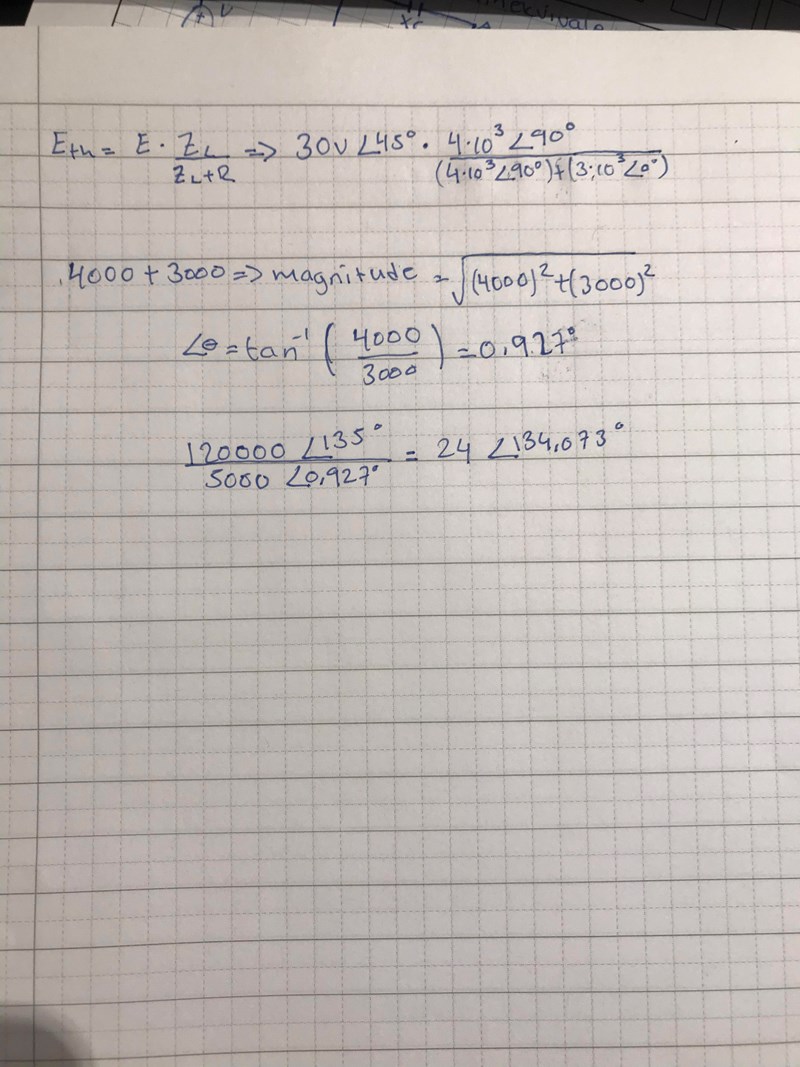 Eth = E · ZL / ZL+R => 30V ∠45° · 4·10³ ∠90° / (4·10³∠90°)+(3·10³∠0°)
4000 + 3000 => magnitude = √(4000)²+(3000)²
∠θ = tan⁻¹ (4000 / 3000) = 0,927°
120000 ∠135° / 5000 ∠0,927° = 24 ∠134,073°